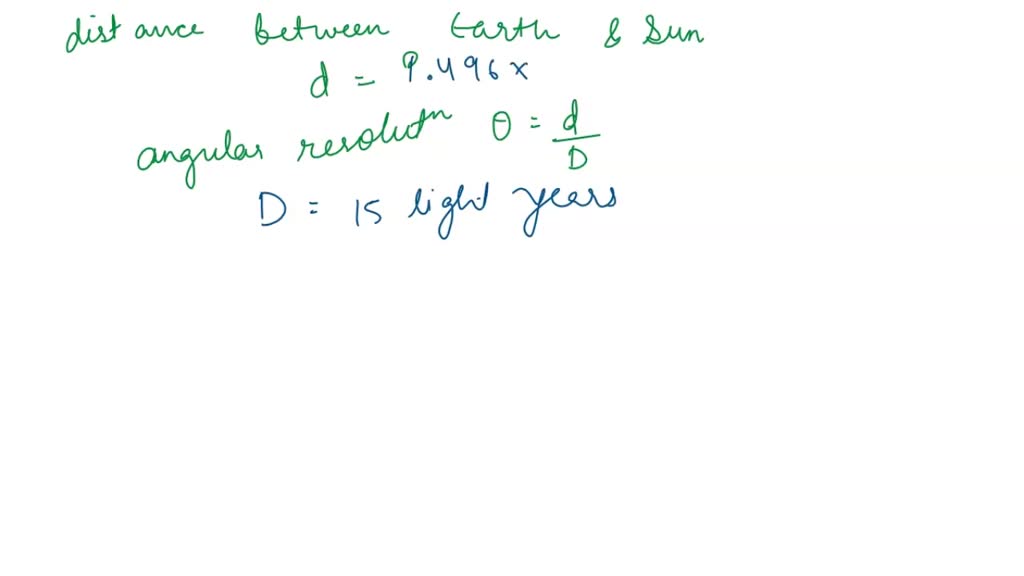 distance between Earth & Sun
d = 9.496 x
angular resolutn θ = d/D
D = 15 light years